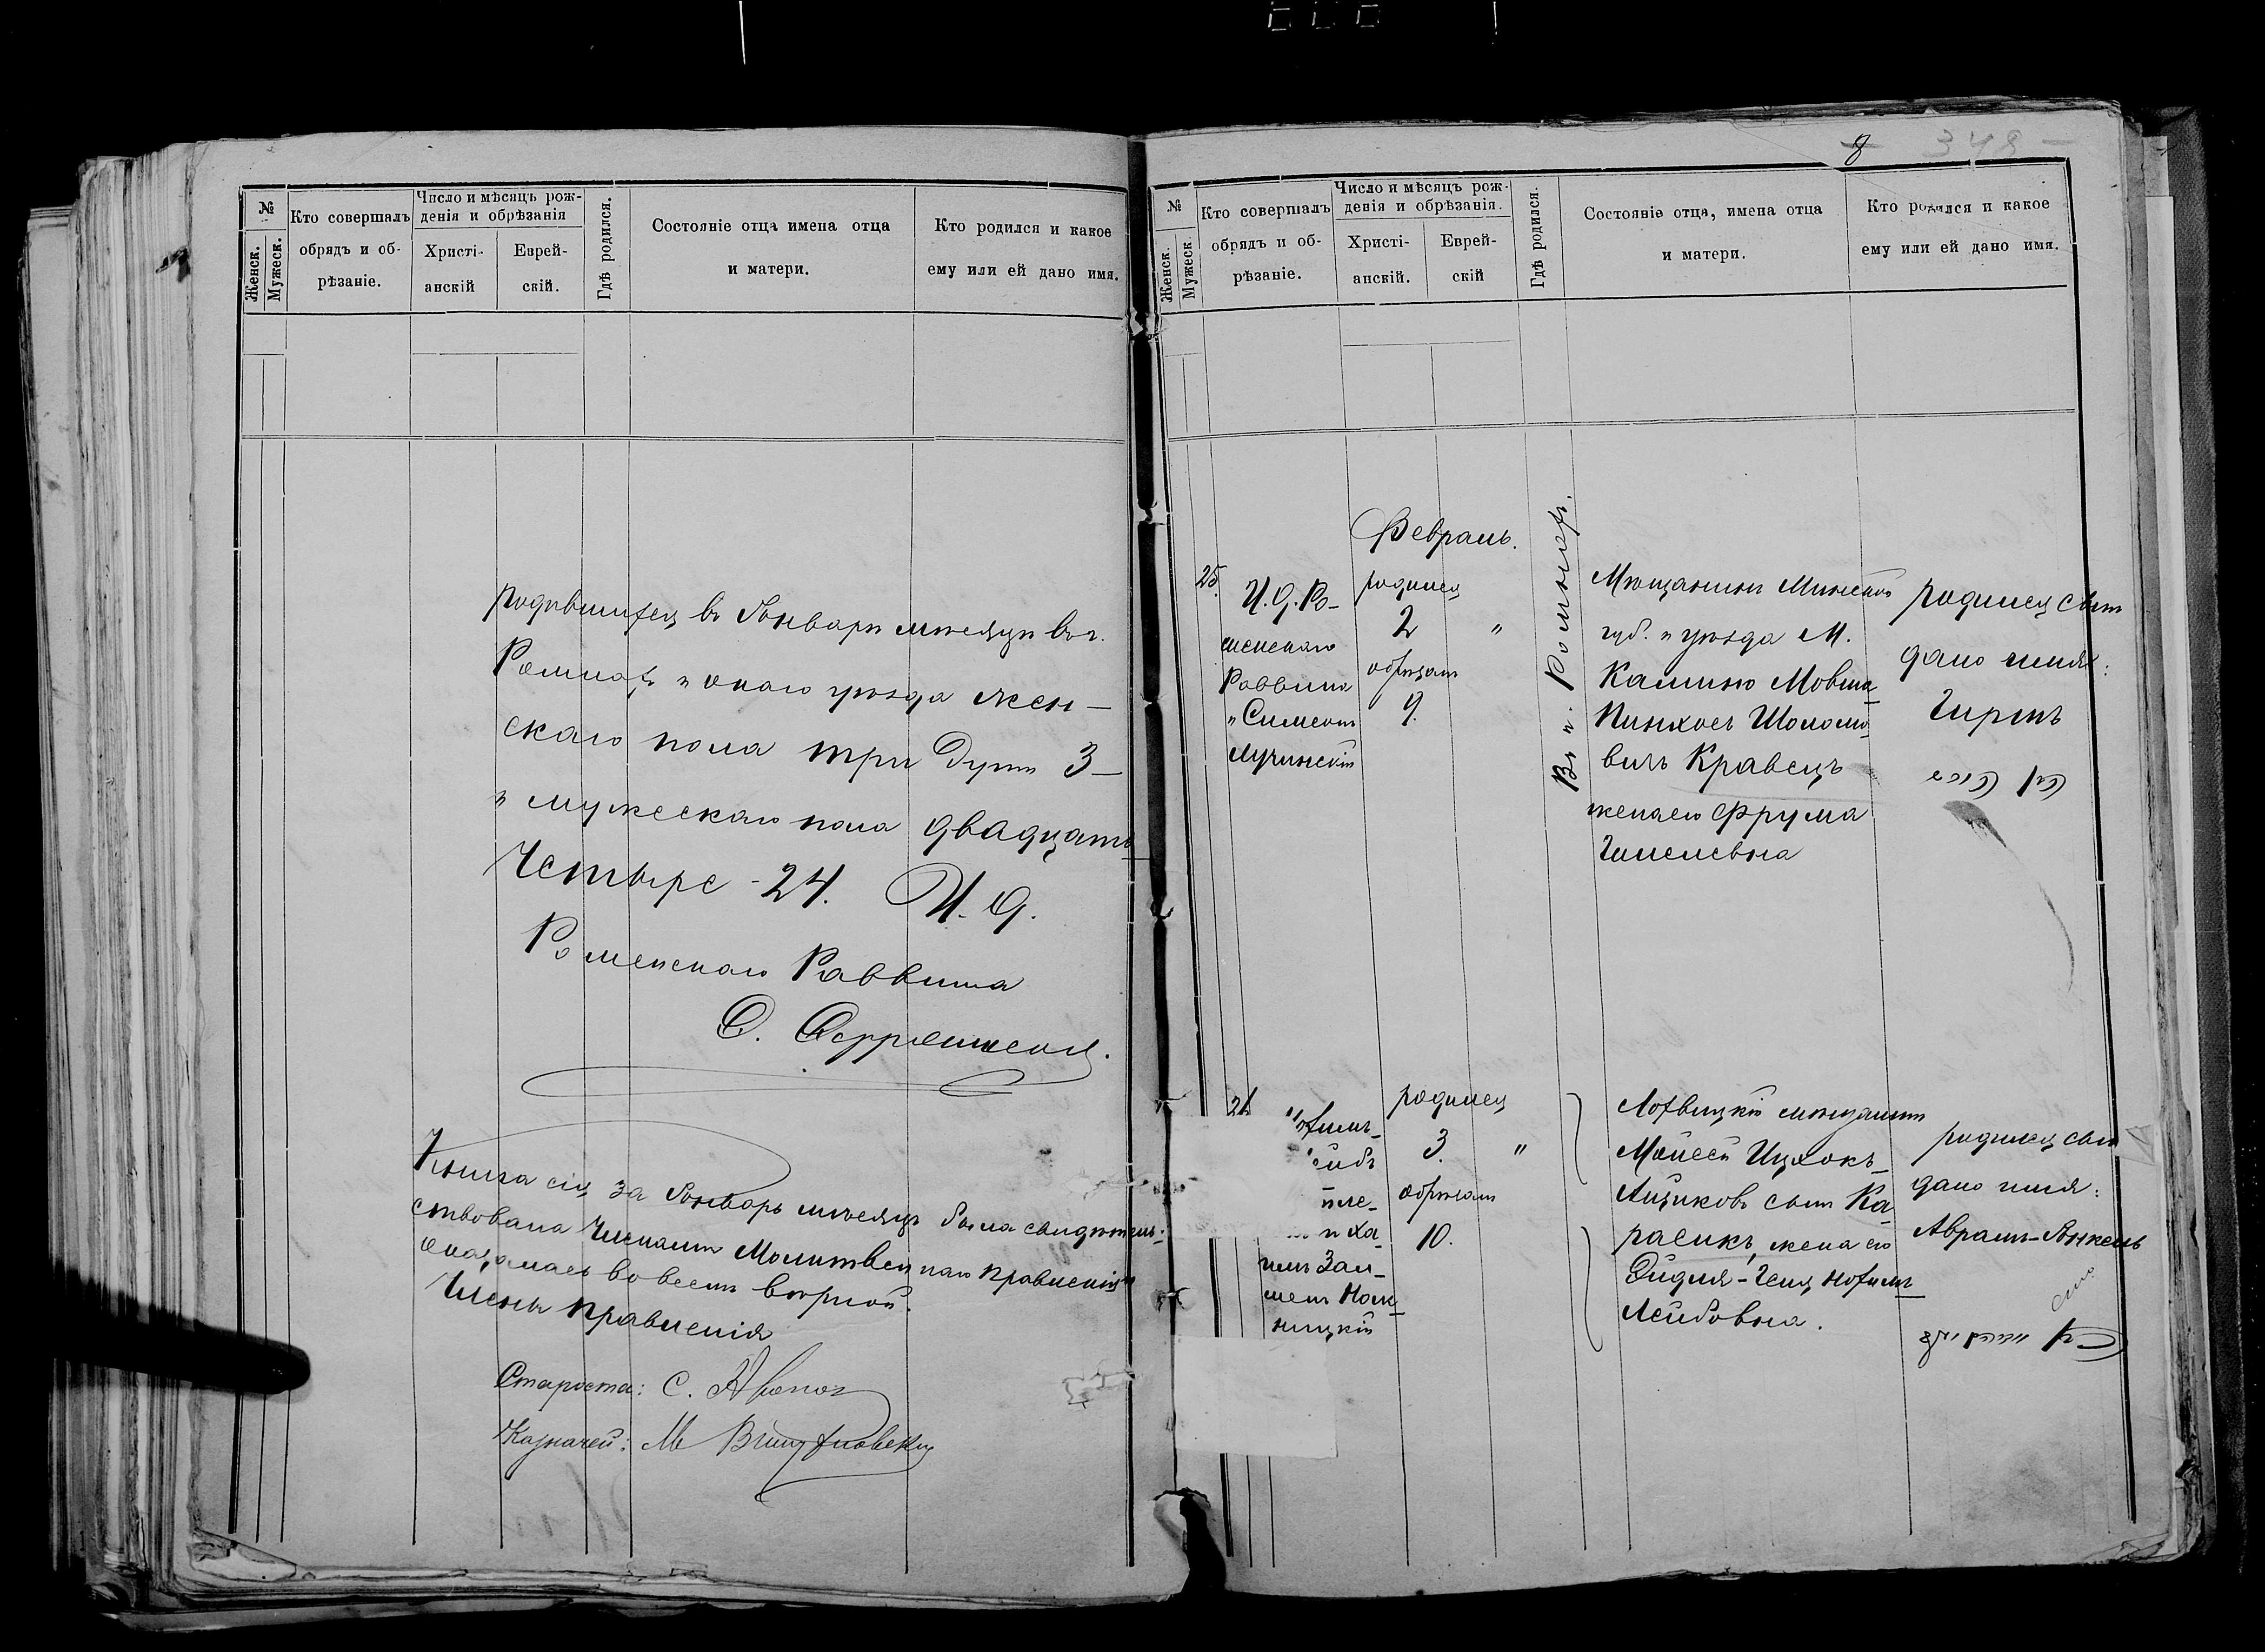 №
Женск.
Мужеск.
Кто совершалъ
обрядъ и об-
рѣзаніе.
Число и мѣсяцъ рож-
денія и обрѣзанія
Христі-
анскій
Еврей-
скій.
Гдѣ родился.
Состояніе отца имена отца
и матери.
Кто родился и какое
ему или ей дано имя.
родившихся въ Январѣ мѣсяцѣ въ г.
Ромнахъ и онаго уѣзда жен-
скаго пола три души 3 —
и мужескаго пола двадцать
Четыре - 24. И. Д.
Роменскаго Раввина
Книга сія за Январь мѣсяцъ была свидѣтель-
ствована Членами Молитвеннаго правленія и
оказалась во всемъ вѣрной.
Члены правленія
Староста: С.
Казначей: М
8 348 —
№
Женск.
Мужеск
Кто совершалъ
обрядъ и об-
рѣзаніе.
Число и мѣсяцъ рож-
денія и обрѣзанія.
Христі-
анскій.
Еврей-
скій
Гдѣ родился.
Состояніе отца, имена отца
и матери.
Кто родился и какое
ему или ей дано имя.
Февраль.
25.
И. Д. Ро-
менскаго
Раввина
и Симеонъ
Лучинскій
родился
2 "
обрѣзанъ
9.
Въ г. Ромнахъ.
Мѣщанинъ Минской
губ. и уѣзда М.
Камино Мовша
Пинхосъ Шоломо-
вичъ Кравецъ
жена его Фрума
Гимелевна
родился сынъ
дано имя:
Гиршъ
родился
3. "
обрѣзанъ
10.
и Ха-
имъ Зал-
ницкій
Лохвицкій мѣщанинъ
Мойсей Ицхокъ-
Айзиковъ сынъ Ка-
расикъ, жена его
Эйдля-Геня Нохимъ-
Лейбовна.
родился сынъ
дано имя:
Абрамъ-Янкель